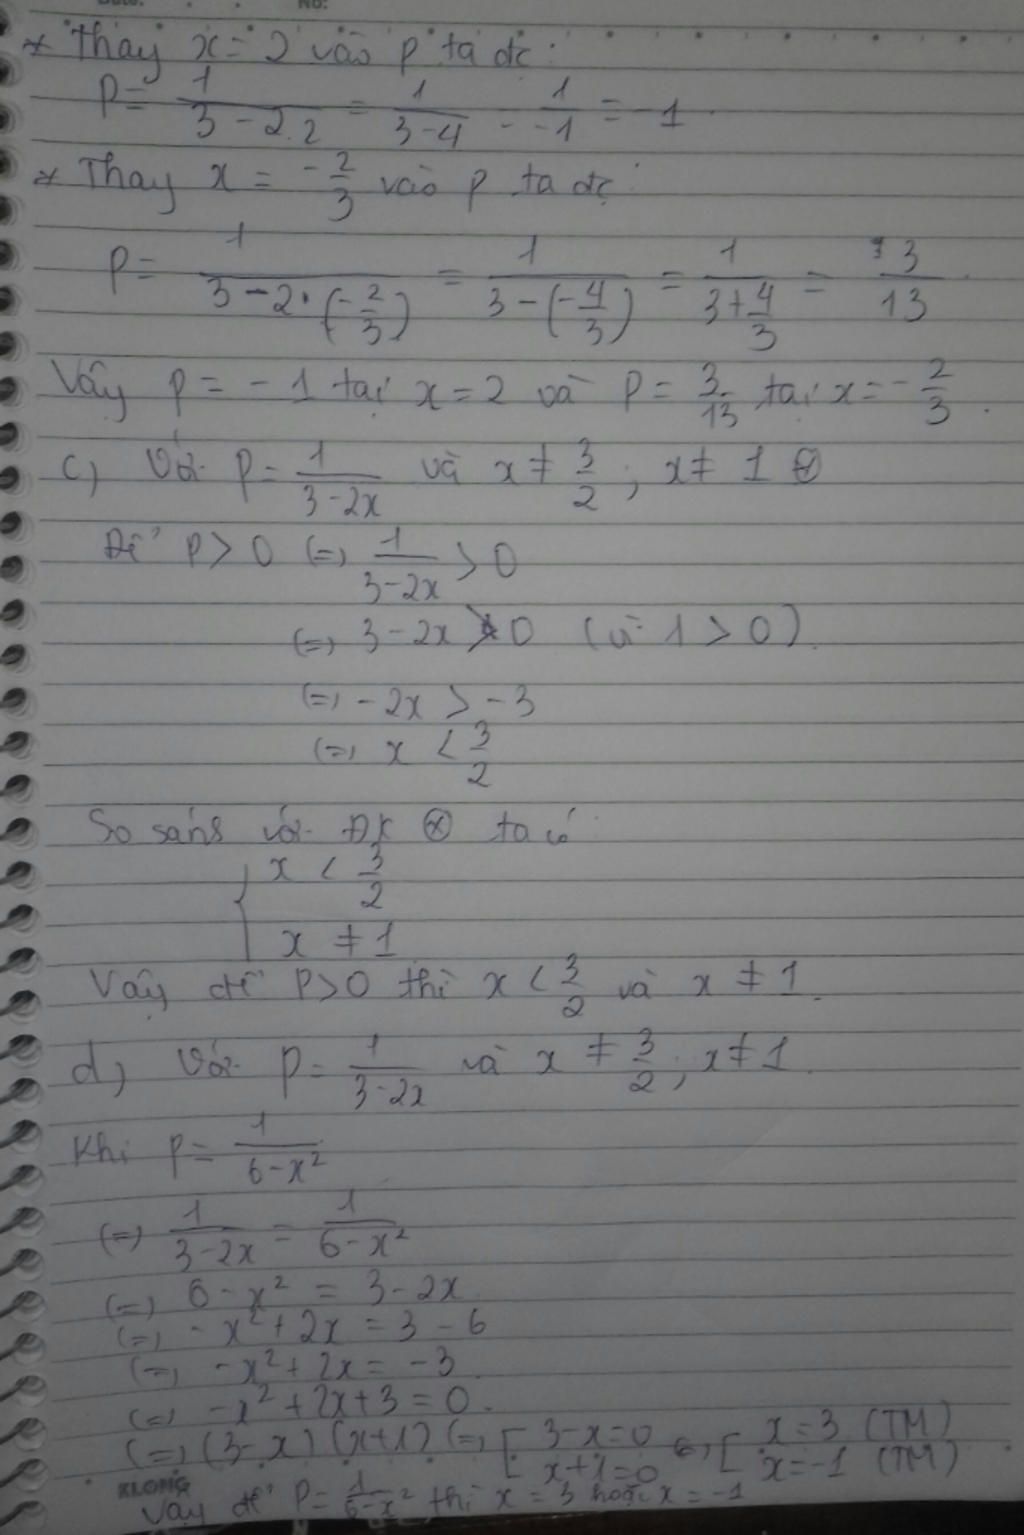 * Thay x = 2 vào P ta đc:
P = 1/(3 - 2.2) = 1/(3-4) = 1/-1 = -1.
* Thay x = -2/3 vào P ta đc:
P = 1/(3-2.(-2/3)) = 1/(3-(-4/3)) = 1/(3+4/3) = 3/13.
Vậy P = -1 tại x = 2 và P = 3/13 tại x = -2/3.
c, Với P = 1/(3-2x) và x ≠ 3/2; x ≠ 1 ⊛
Để P > 0 (=) 1/(3-2x) > 0
(=) 3-2x > 0 (vì 1 > 0).
(=) -2x > -3
(=) x < 3/2
So sánh với ĐK ⊛ ta có
{ x < 3/2
x ≠ 1
Vậy để P>0 thì x < 3/2 và x ≠ 1.
d, Với P = 1/(3-2x) và x ≠ 3/2; x ≠ 1.
Khi P = 1/(6-x²)
(=) 1/(3-2x) = 1/(6-x²)
(=) 6-x² = 3-2x
(=) -x²+2x = 3-6
(=) -x²+2x = -3
(=) -x²+2x+3 = 0.
(=) (3-x)(x+1) (=) [ 3-x=0 (=) [ x=3 (TM)
x+1=0 x=-1 (TM)
KLONG
Vậy để P = 1/(6-x²) thì x = 3 hoặc x = -1